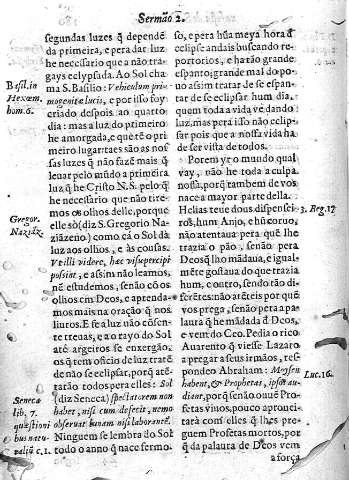 Sermão 2.
segundas luzes q̃ dependẽ
da primeira, e pera dar luz
he necessario que a não tra-
gays eclypsada. Ao Sol cha
ma S. Basilio: Vehiculum pri-
mogenitæ lucis, e por isso foy
criado despois ao quarto
dia: mas a luz do primeiro
he amorgada, e que tẽ o pri
meiro lugar: taes saõ as nos
sas luzes q̃ não fazẽ mais q̃
leuar pelo mũdo a primeira
luz q̃ he Christo N.S. pelo q̃
he necessario que não tire-
mos os olhos delle, porque
elle sò (diz S. Gregorio Na-
ziãzeno) como cà o Sol dà
luz aos olhos, e às cousas.
Vt illi videre, hæc vise percipi
possint, e assim não leamos,
nẽ estudemos, senão cõ os
olhos em Deos, e aprenda-
mos mais na oração q̃ nos
liuros. E se a luz não cõsen-
te treuas, e o rayo do Sol
atè argeiros se enxergão,
os q̃ tem officio de luz tratẽ
de não se eclipsar, porq̃ atẽ-
tarão todos pera elles: Sol
(diz Seneca) spectatorem non
habet, nisi cum deficit, nemo
obseruat lunam nisi laborantẽ.
Ninguem se lembra do Sol
todo o anno q̃ nace fermo-
Basil. in
Hexem.
hom. 6.
Gregor.
Naziãz.
Seneca
lib. 7.
quæstioni
bus natu-
c. 1.
so, e pera hũa meya hora d̃
eclipse andais buscando re-
portorios, e harão grande
espanto; grande mal do po-
uo assim tratar de se espan-
tar de se eclipsar hum dia,
quem toda a vida ve dando
luz, mas pera isso não eclip-
sar pois que a nossa vida ha
de ser vista de todos.
Porem yr o mundo qual
vay, não he toda a culpa
nossa, porq̃ tambem de vos
nace a mayor parte della.
Helias teue dous dispensei-
ros, hum Anjo, e hũ coruo,
não atentaua pera quẽ lhe
trazia o pão, senão pera
Deos q̃ lho mãdaua, e igual-
mẽte gostaua do que trazia
hum, contro, sendo tão di-
ferẽtes: não atẽteis por quẽ
vos prega, senão pera a pa-
laura q̃ he mãdada d̃ Deos,
e vem do Ceo. Pedia o rico
Auarento q̃ viesse Lazaro
a pregar a seus irmãos, res-
pondeo Abraham: Moysen
habent, & Prophetas, ipsos au-
diant, porq̃ senão ouuẽ Pro-
fetas viuos, pouco aprouei-
tarà com elles q̃ lhes pre-
guem Profetas mortos, por
q̃ da palaura de Deos vem
3. Reg. 17
Luc. 16.
a força